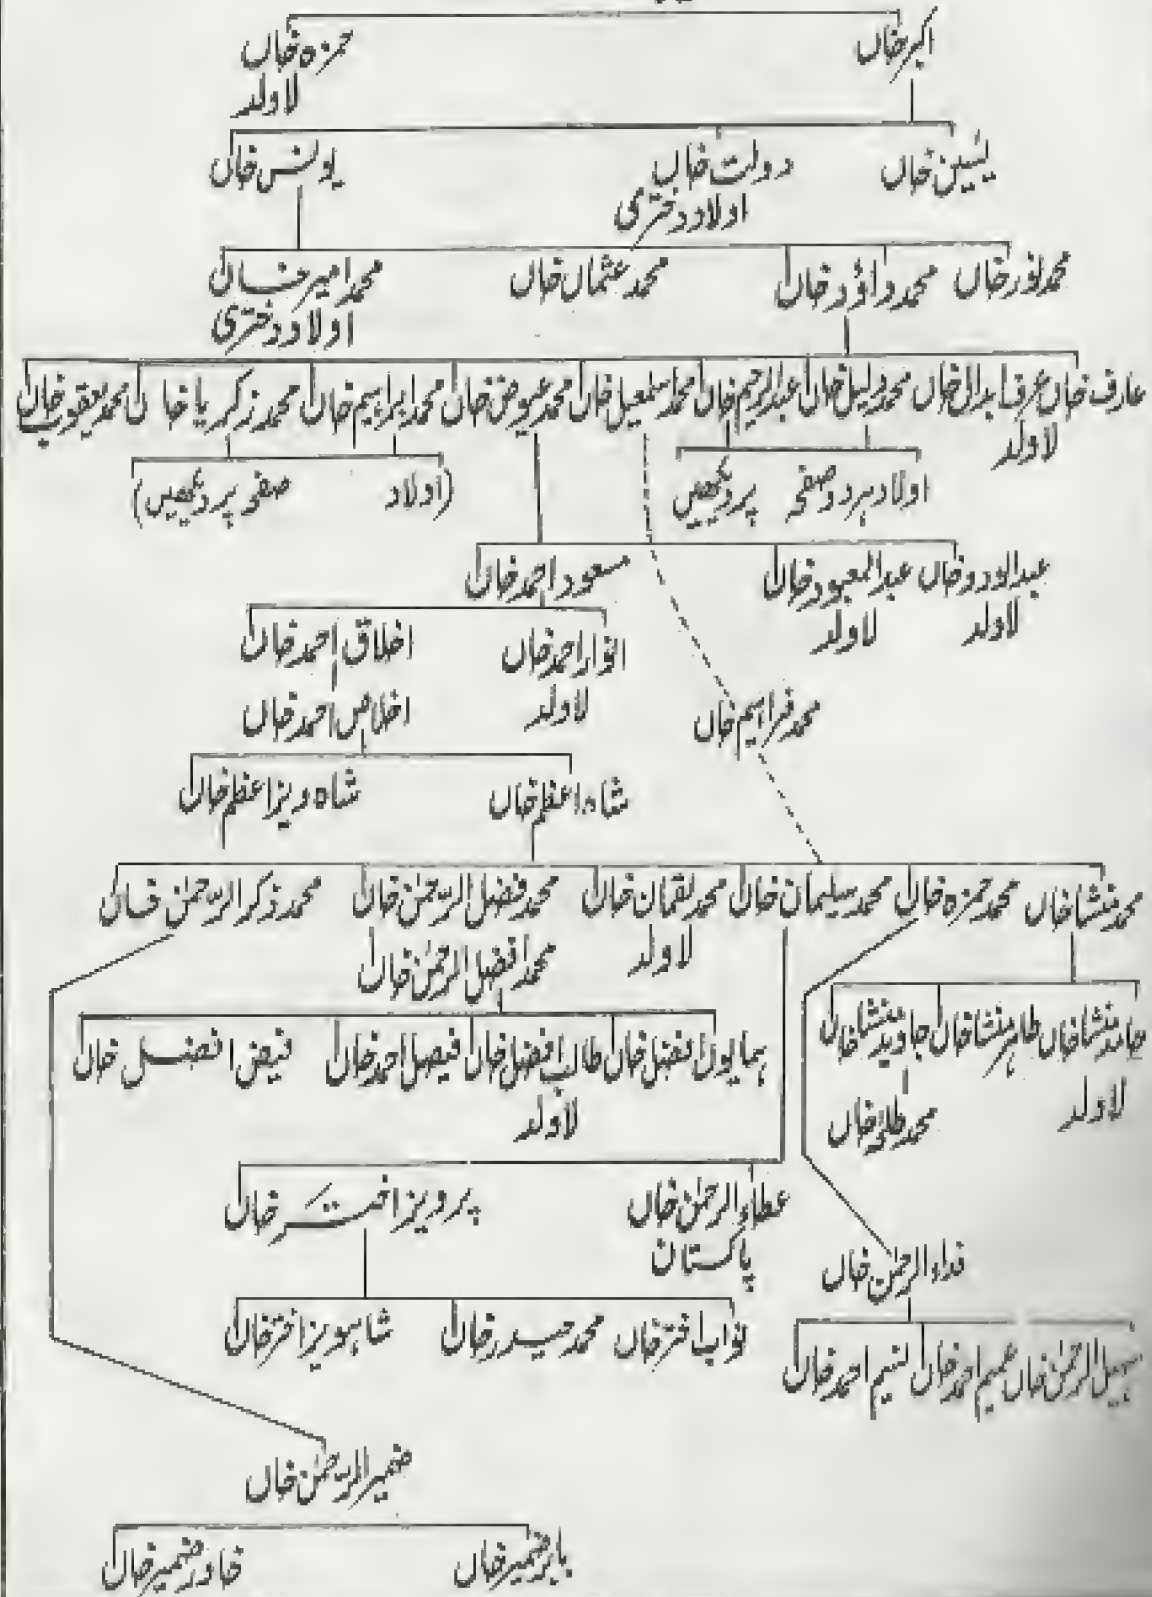 اکبر خاں حمزہ خاں
لاولد
یٰسین خاں دولت خاں یونس خاں
اولاد دختری
محمد نور خاں محمد داؤد خاں محمد عثمان خاں محمد امیر خاں
اولاد دختری
عارف خاں عرف ابدال خاں محمد دلیل خاں عبدالرحیم خاں محمد اسمٰعیل خاں محمد عیوض خاں محمد ابراہیم خاں محمد زکریا خاں محمد یعقوب خاں
لاولد
اولاد ہر دو صفحہ پر دیکھیں (اولاد صفحہ پر دیکھیں)
عبدالودود خاں عبدالمعبود خاں مسعود احمد خاں
لاولد لاولد
انوار احمد خاں اخلاق احمد خاں
لاولد اخلاص احمد خاں
محمد فراہیم خاں
شاہ اعظم خاں شاہ ویز اعظم خاں
محمد منشا خاں محمد حمزہ خاں محمد سلیمان خاں محمد لقمان خاں محمد فضل الرحمٰن خاں محمد ذکر الرحمٰن خاں
لاولد محمد افضل الرحمٰن خاں
حامد منشا خاں طاہر منشا خاں جاوید منشا خاں
ہمایوں افضل خاں طالب افضل خاں فیصل احمد خاں فیض افضل خاں
لاولد محمد طلحہ خاں لاولد
عطاء الرحمٰن خاں پرویز اختر خاں
پاکستان
فداء الرحمٰن خاں
نواب اختر خاں محمد حیدر خاں شاہویز اختر خاں
سہیل الرحمٰن خاں عمیم احمد خاں نسیم احمد خاں
ضمیر الرحمٰن خاں
بابر ضمیر خاں خاور ضمیر خاں